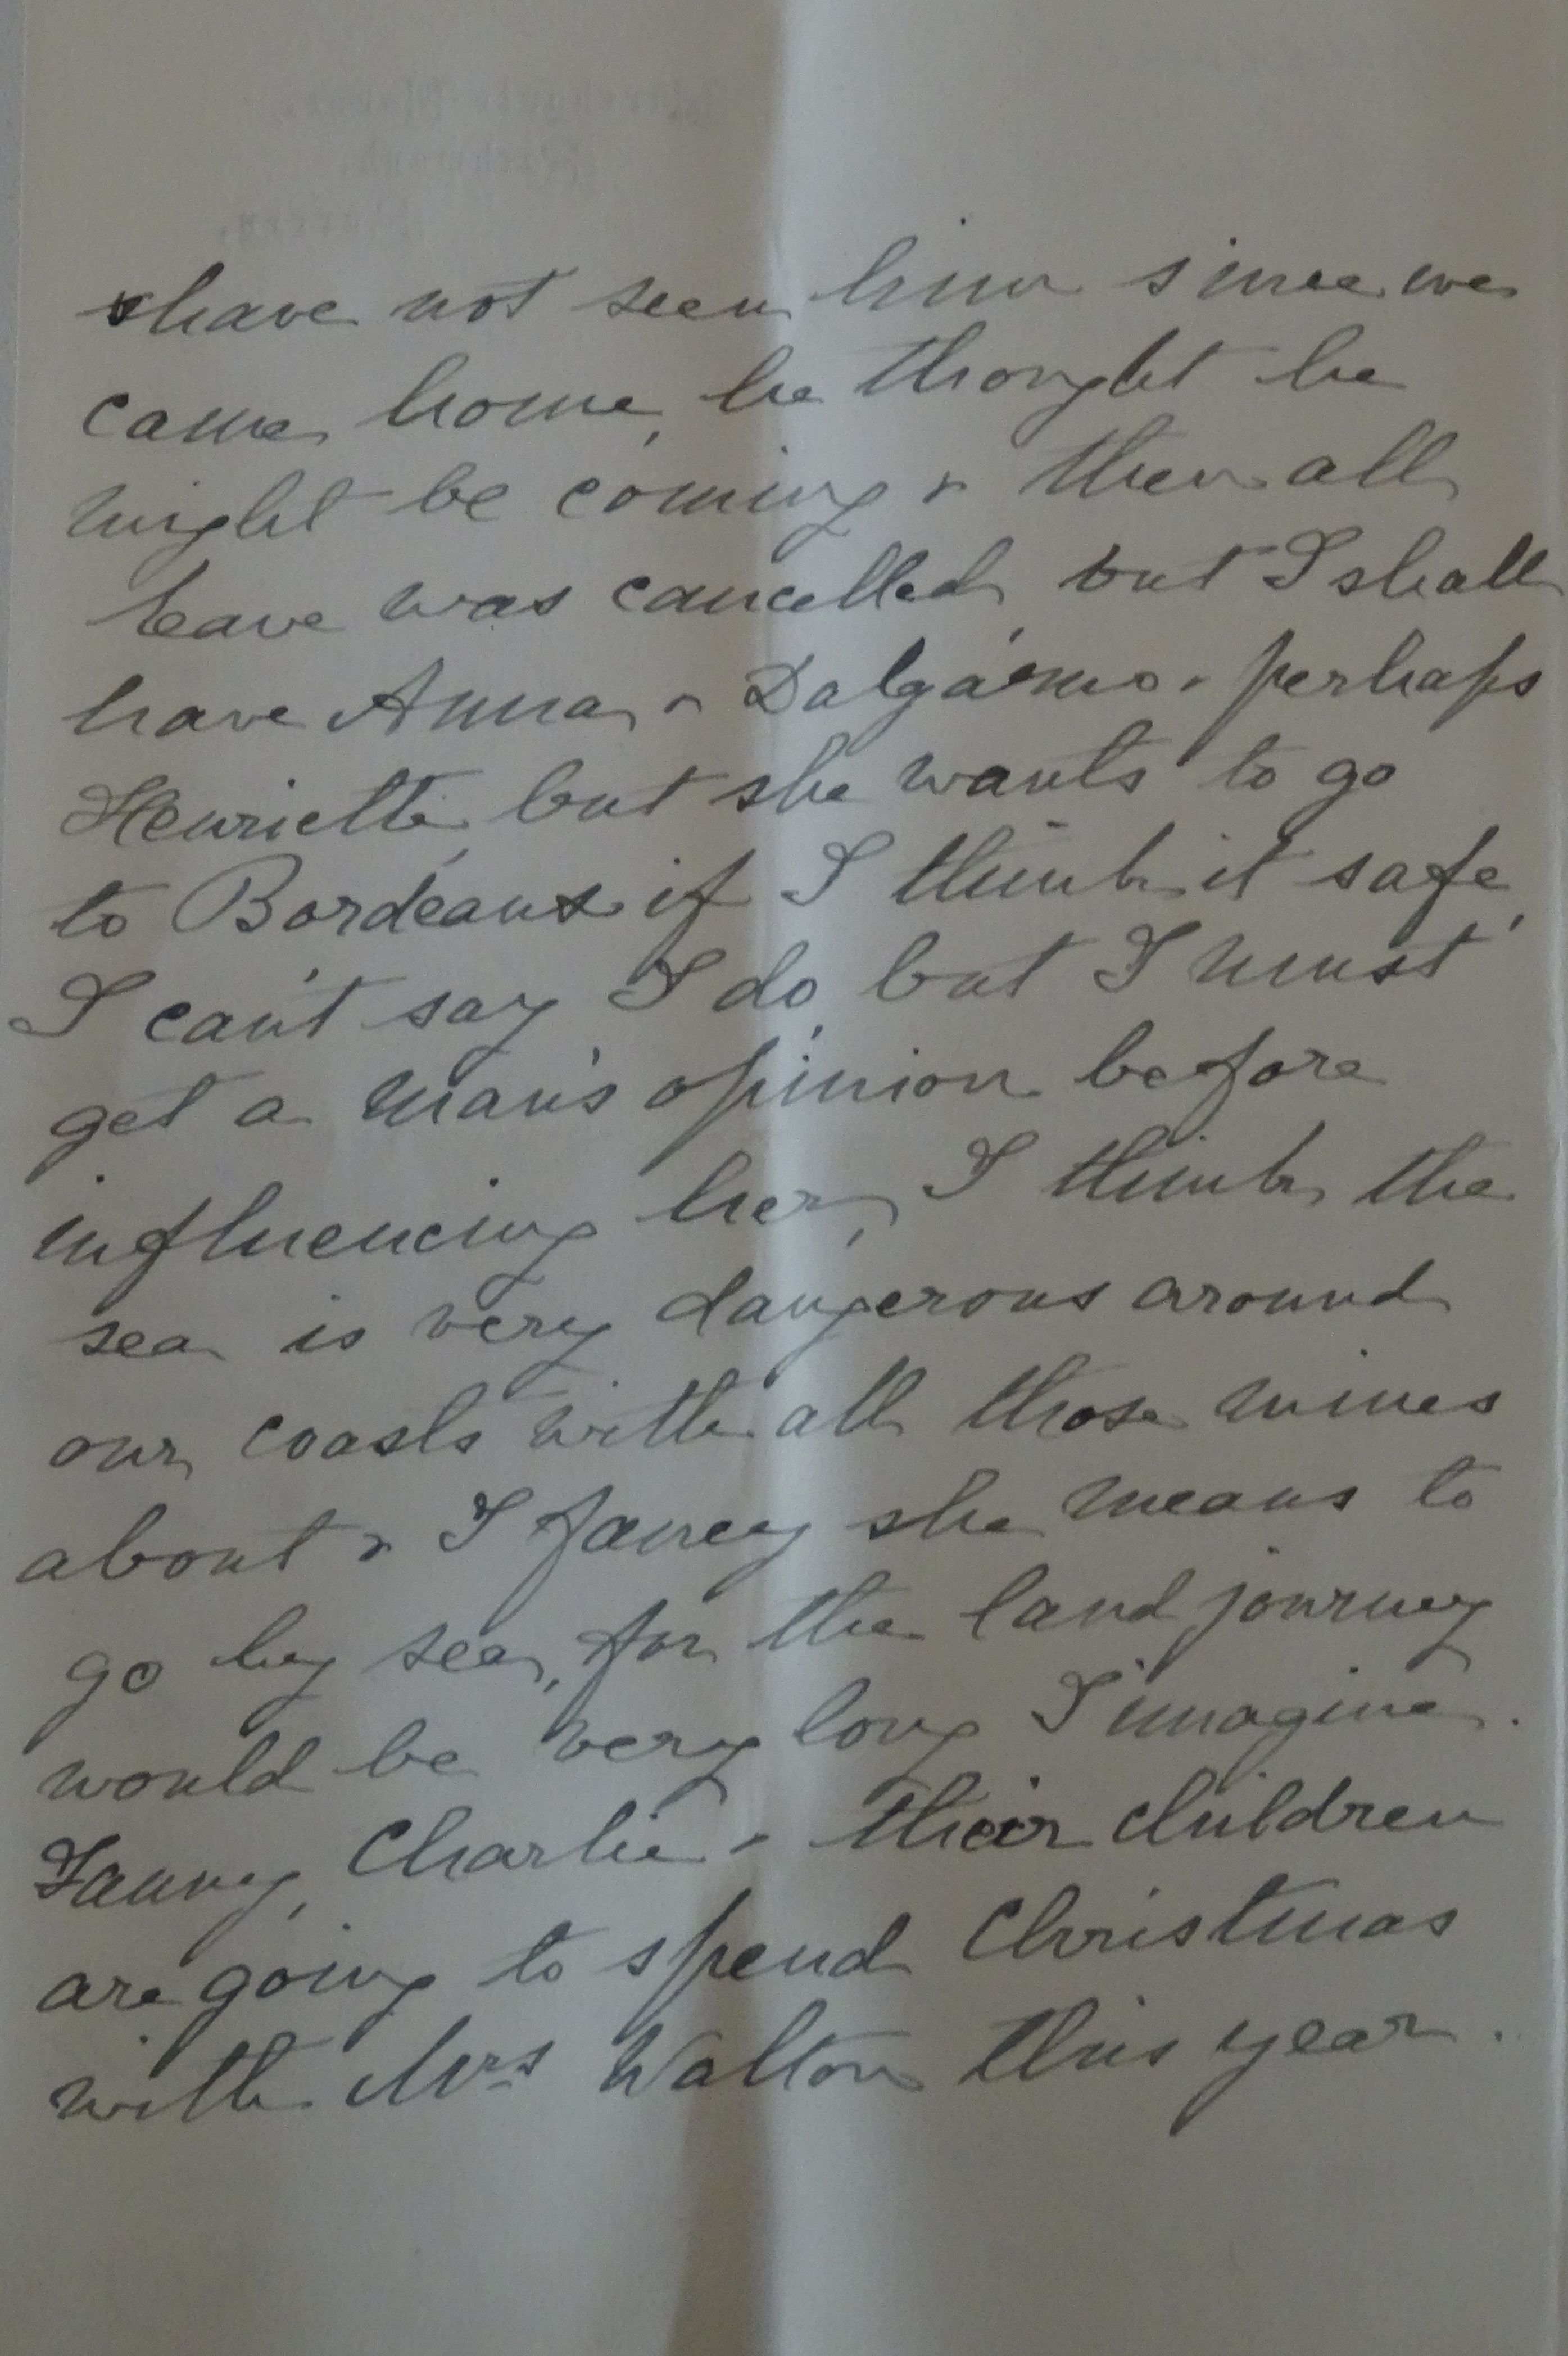 have not seen him since we
came home, he thought he
might be coming & then all
leave was cancelled, but I shall
have Anna & perhaps
Henriette, but she wants to go
to Bordeaux if I think it safe,
I can't say I do, but I must
get a man's opinion before
influencing her, I think the
sea is very dangerous around
our coasts with all those mines
about & I fancy she means to
go by sea, for the land journey
would be very long I imagine.
Fanny, Charlie & their children
are going to spend Christmas
with Mrs Walton this year.